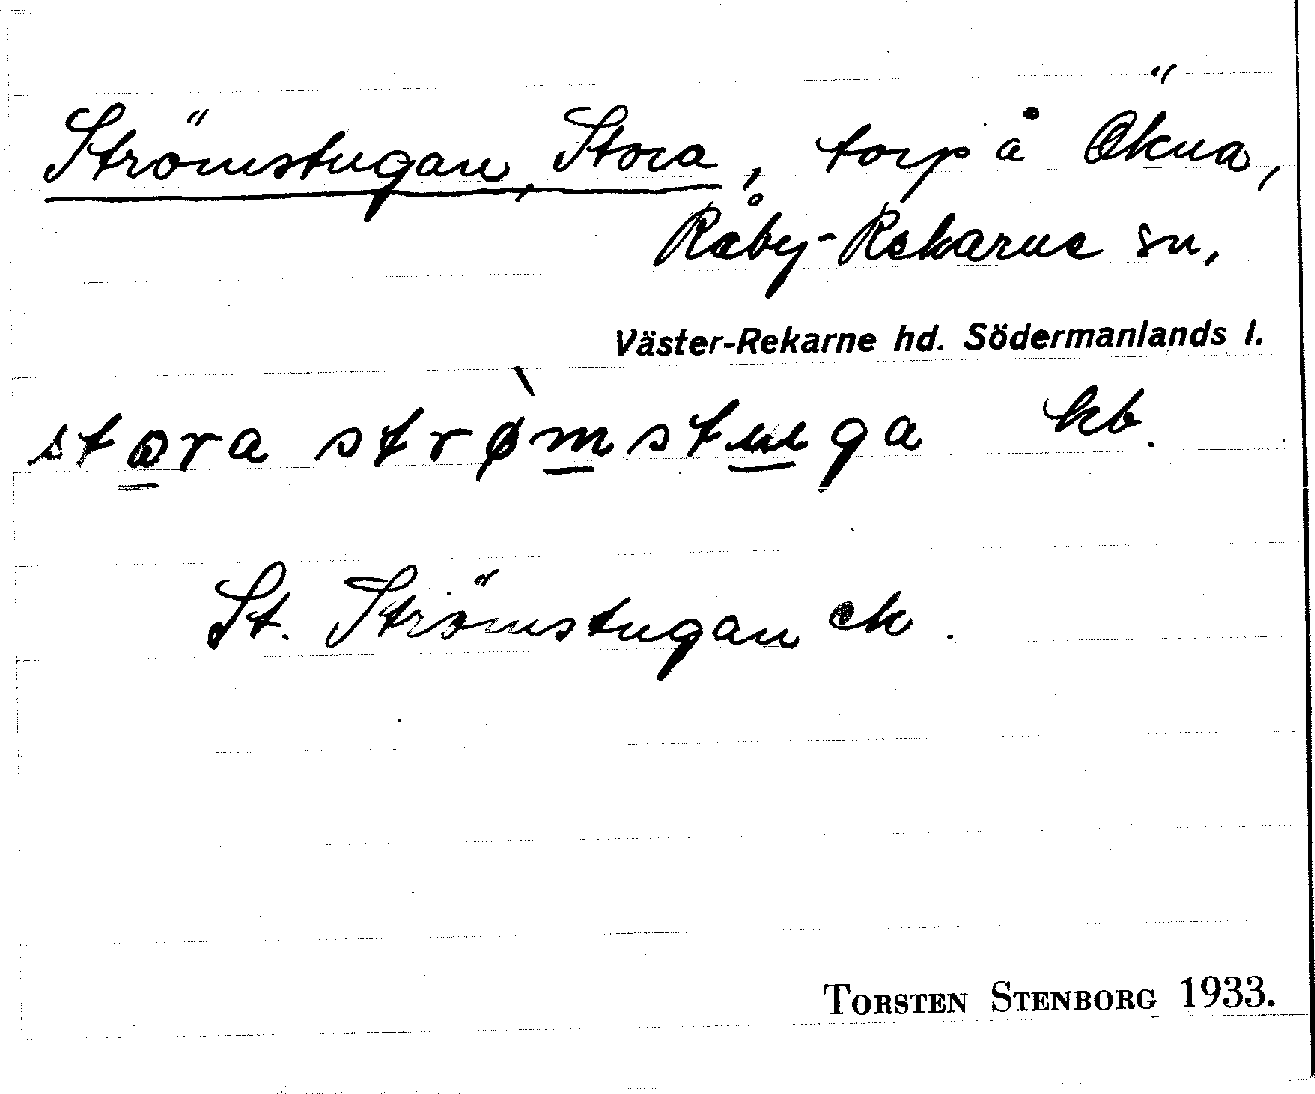 Strömstugan, Stora, torp å Ökna,
Råby-Rekarne sn,
Väster-Rekarne hd. Södermanlands l.
stora strø̀mstuga kb.
St. Strömstugan ek.
TORSTEN STENBORG 1933.